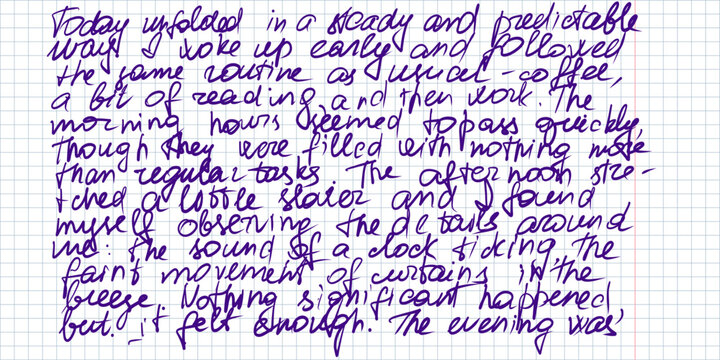 Today unfolded in a steady and predictable
way. I woke up early and followed
the same routine as usual - coffee,
a bit of reading and then work. The
morning hours seemed to pass quickly,
though they were filled with nothing more
than regular tasks. The afternoon stre-
tched a little slower and I found
myself observing the details around
me: the sound of a clock ticking, the
faint movement of curtains in the
breeze. Nothing significant happened
but it felt enough. The evening was